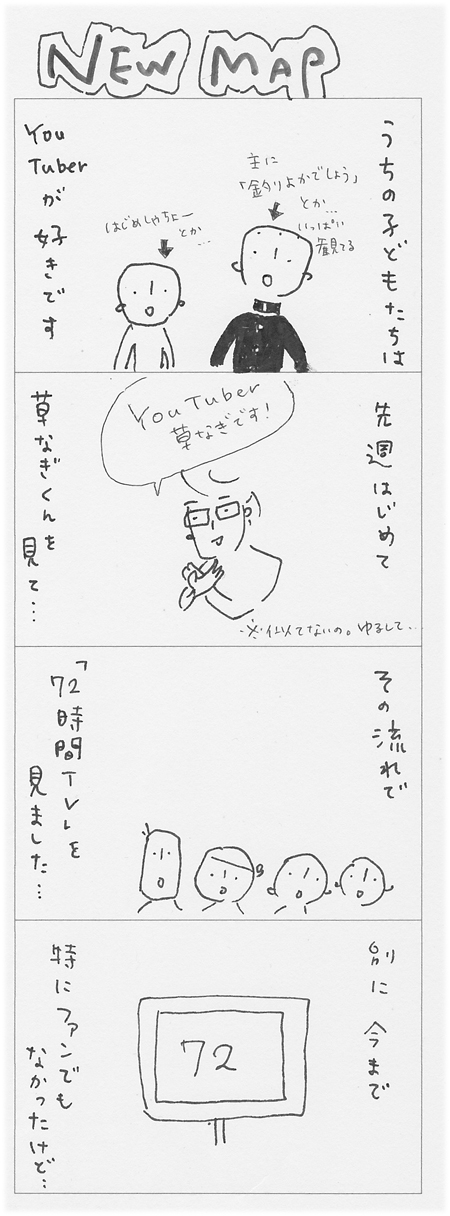 NEW MAP
うちの子どもたちは
主に
「釣りよかでしょう」
とか…
いっぱい
観てる
はじめしゃちょー
とか
…
You
Tuber
が
好きです
先週はじめて
YouTuber
草なぎです!
草なぎくんを
見て…
※似てないの。ゆるして…
その流れで
「72時間TV」を
見ました…
別に今まで
72
特にファンでも
なかったけど…